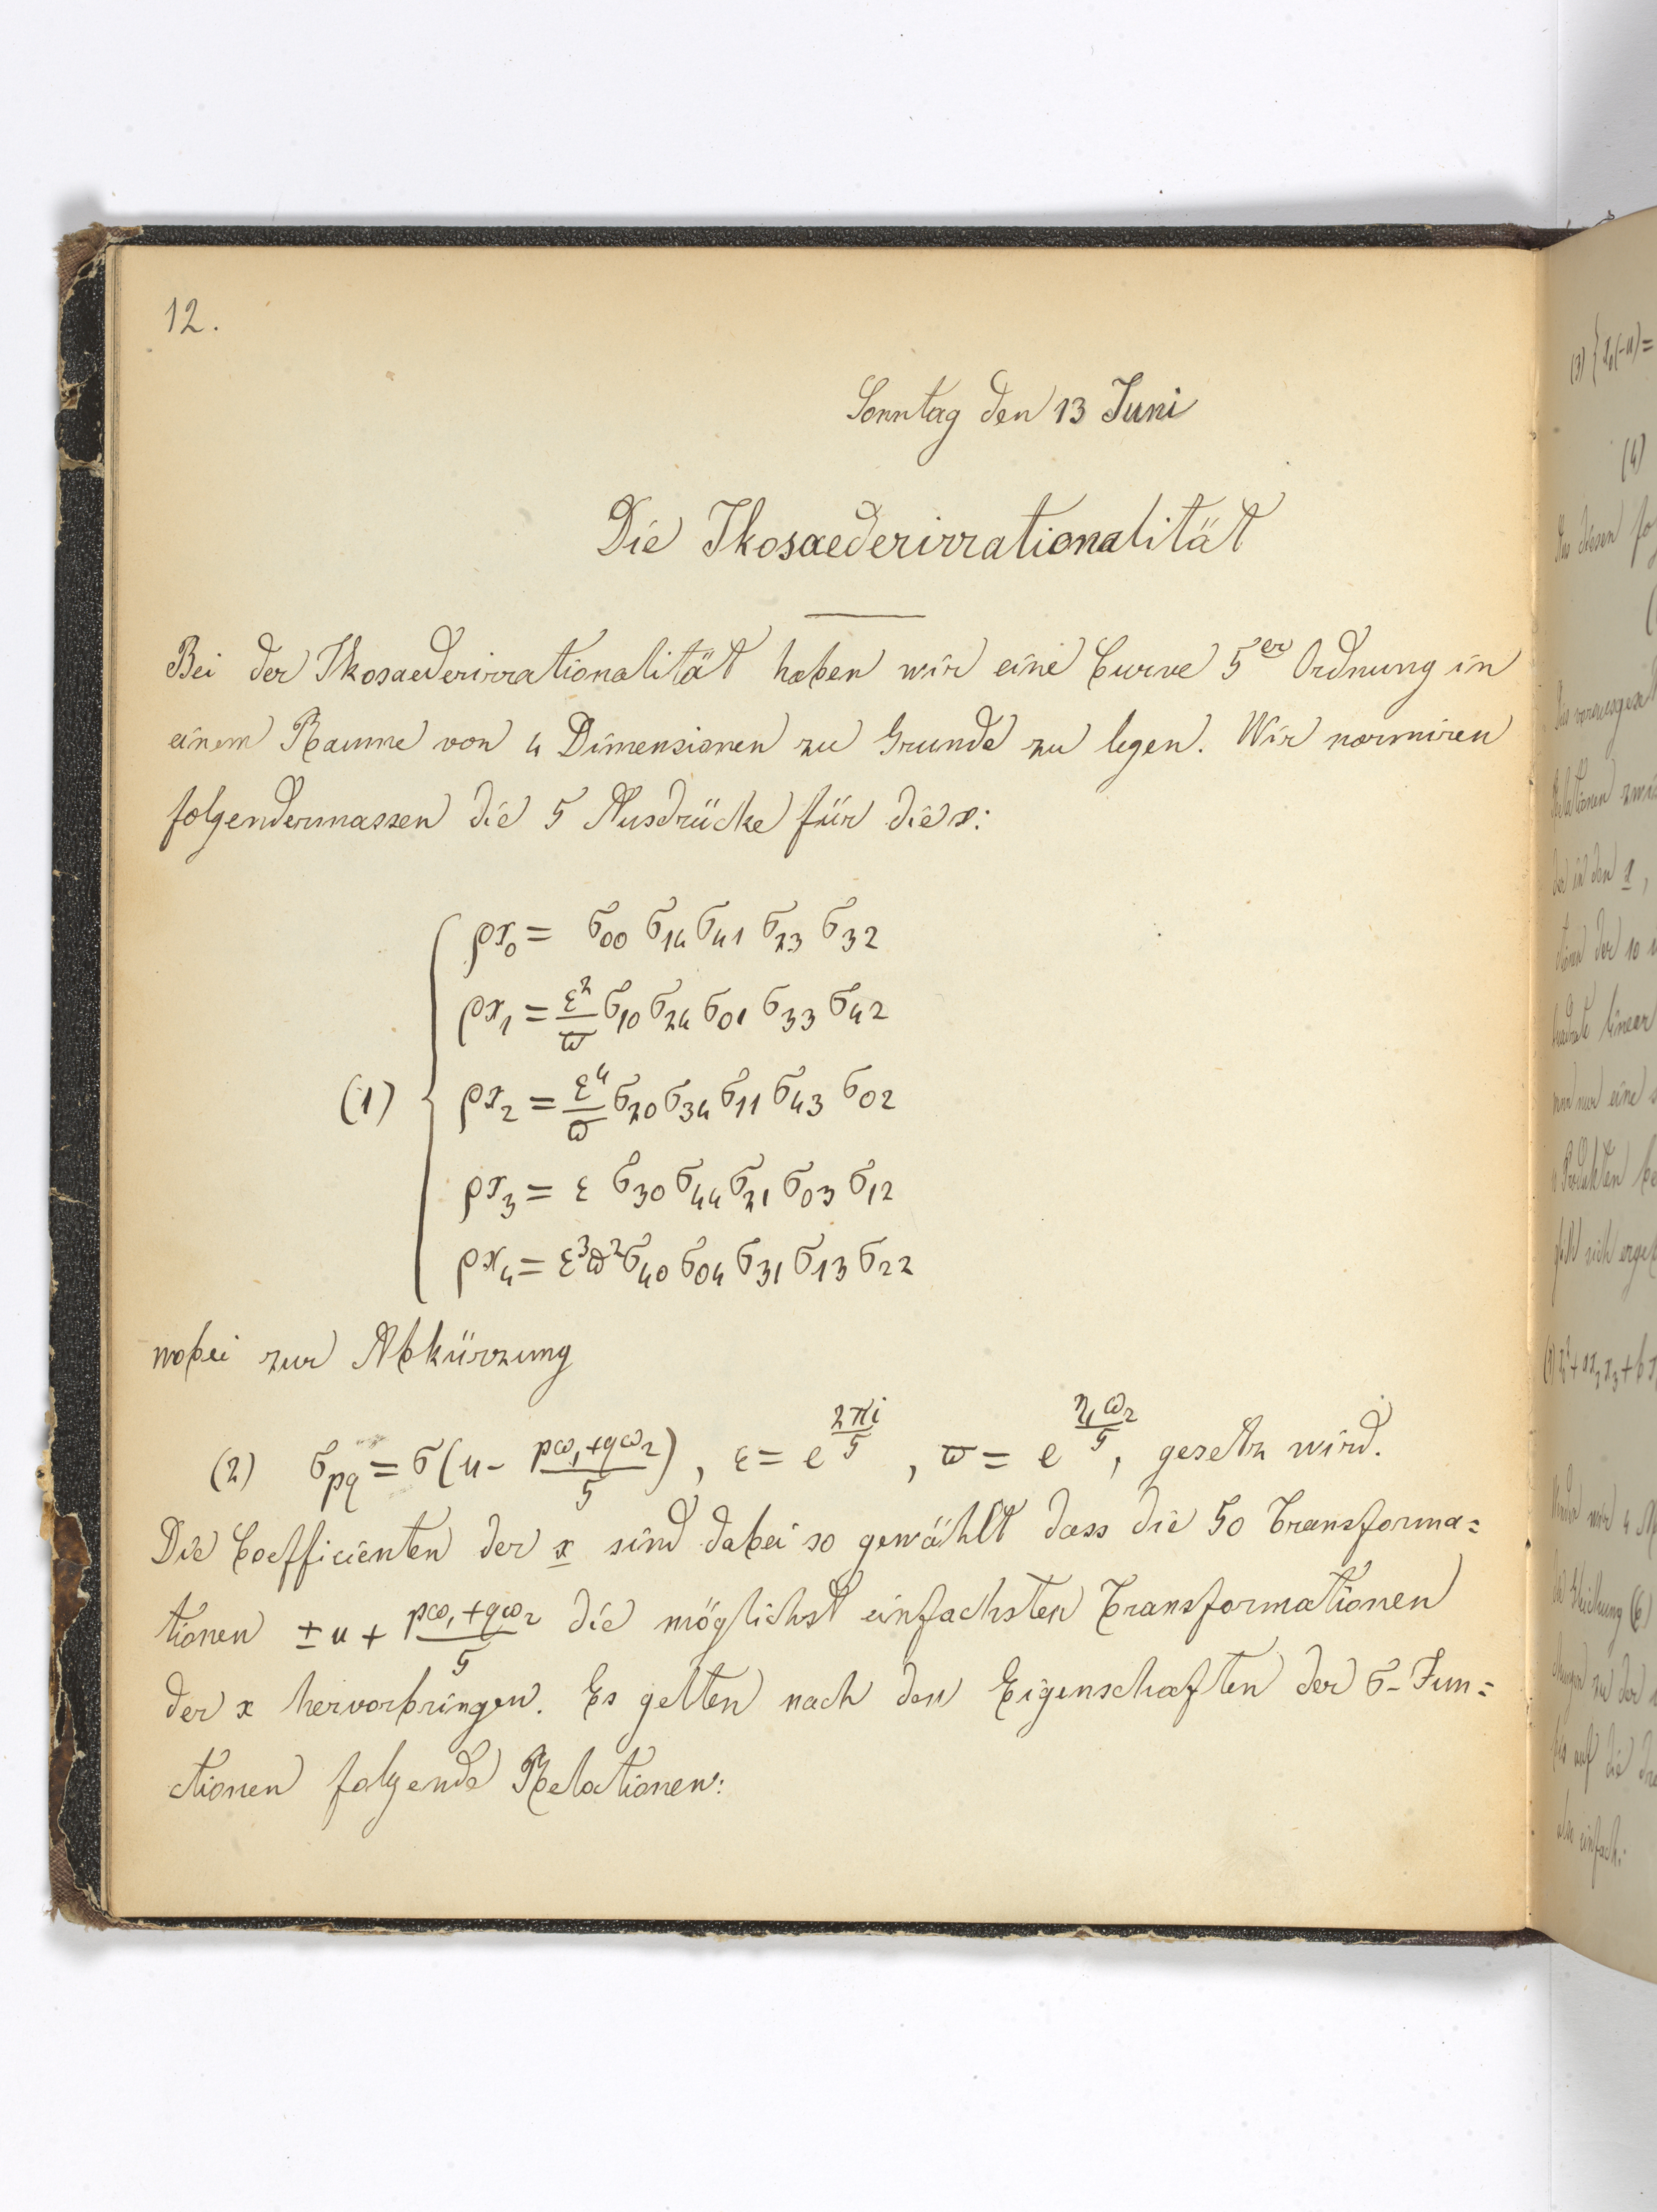 12.
Sonntag den 13 Juni
Die Ikosaederirrationalität
Bei der Ikosaederirrationalität haben wir eine Curve 5er Ordnung in
einem Raume von 4 Dimensionen zu Grunde zu legen. Wir normiren
folgendermassen die 5 Ausdrücke für die x:
ρx₀ = σ₀₀ σ₁₄ σ₄₁ σ₂₃ σ₃₂
ρx₁ = ε²/ϖ σ₁₀ σ₂₄ σ₀₁ σ₃₃ σ₄₂
(1) { ρx₂ = ε⁴/ϖ σ₂₀ σ₃₄ σ₁₁ σ₄₃ σ₀₂
ρx₃ = ε σ₃₀ σ₄₄ σ₂₁ σ₀₃ σ₁₂
ρx₄ = ε³ϖ² σ₄₀ σ₀₄ σ₃₁ σ₁₃ σ₂₂
wobei zur Abkürzung
(2) σpq = σ(u - (pω₁+qω₂)/5), ε = e^(2πi/5), ϖ = e^(η₁ω₂/5), gesetzt wird.
Die Coefficienten der x sind dabei so gewählt dass die 50 Transforma=
tionen ±u + (pω₁+qω₂)/5 die möglichst einfachsten Transformationen
der x hervorbringen. Es gelten nach den Eigenschaften der σ-Fun=
ctionen folgende Relationen:
(3) {
(4)